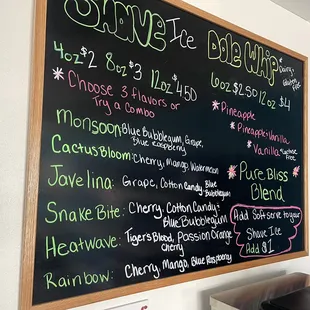 Shave Ice
4oz $2 8oz $3 12oz $4.50
* Choose 3 flavors or
Try a Combo
Monsoon: Blue Bubblegum, Grape,
Blue Raspberry
Cactus Bloom: Cherry, Mango, Watermelon
Javelina: Grape, Cotton Candy, Blue
Bubblegum
Snake Bite: Cherry, Cotton Candy,
Blue Bubblegum
Heatwave: Tiger's Blood, Passion Orange
Cherry
Rainbow: Cherry, Mango, Blue Raspberry
Dole Whip
Dairy +
Gluten
Free
6oz $2.50 12oz $4
* Pineapple
* Pineapple + Vanilla
* Vanilla Lactose
Free
* Pure Bliss *
Blend
Add Soft serve to your
Shave Ice
Add $1